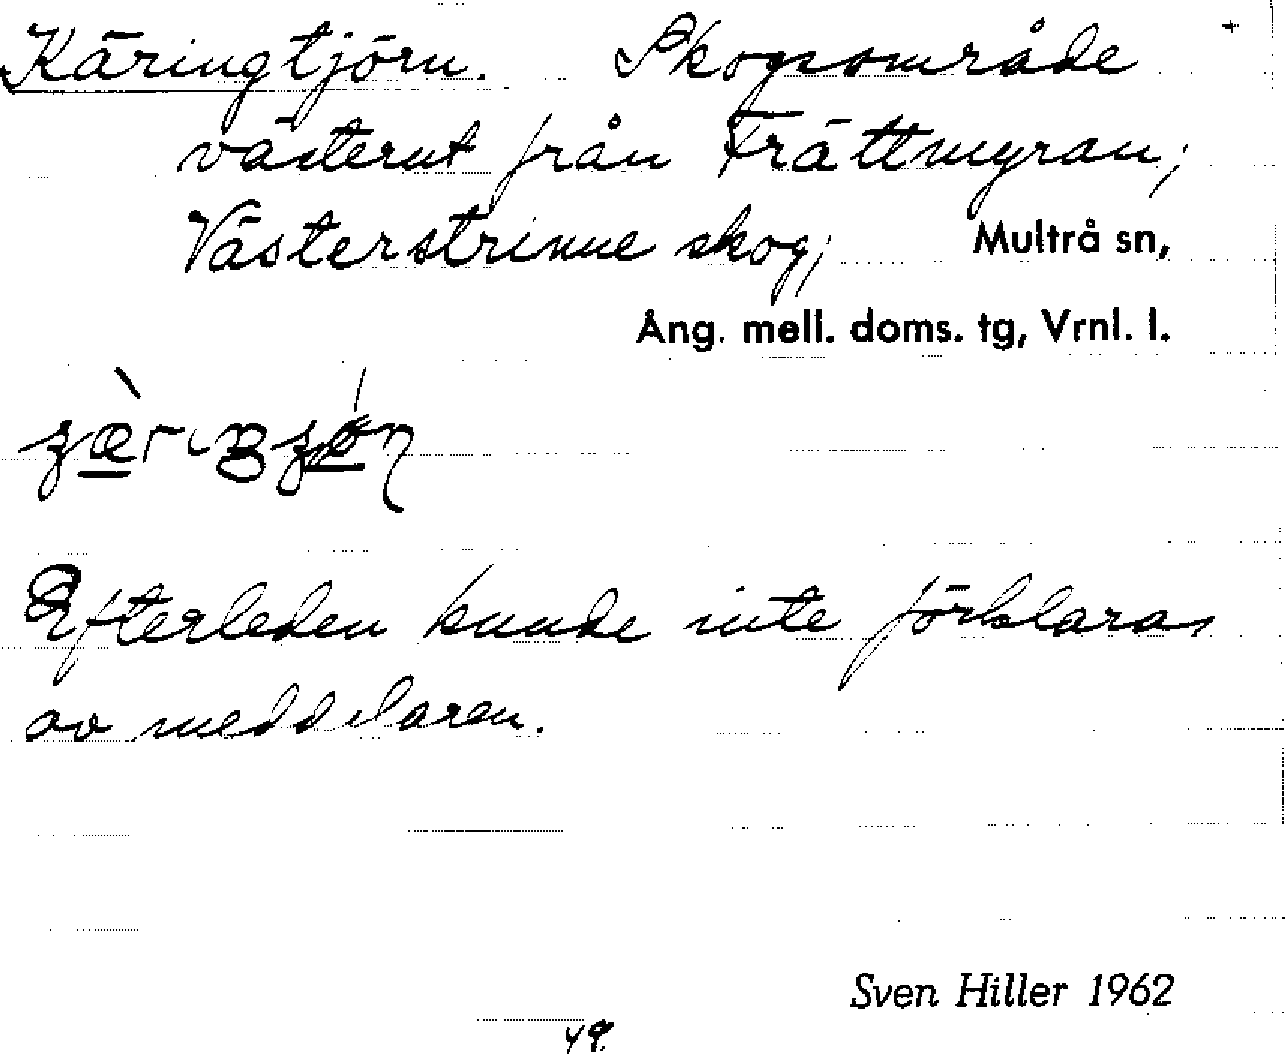 Käringtjörn. Skogsområde +
västerut från Trättmyran;
Västerstrinne skog; Multrå sn,
Ång. mell. doms. tg, Vrnl. l.
Efterleden kunde inte förklaras
av meddelaren.
Sven Hiller 1962
49.